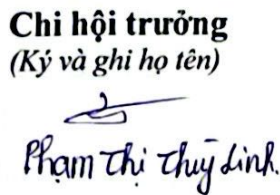 Chi hội trưởng
(Ký và ghi họ tên)
Phạm Thị Thuỳ Linh.